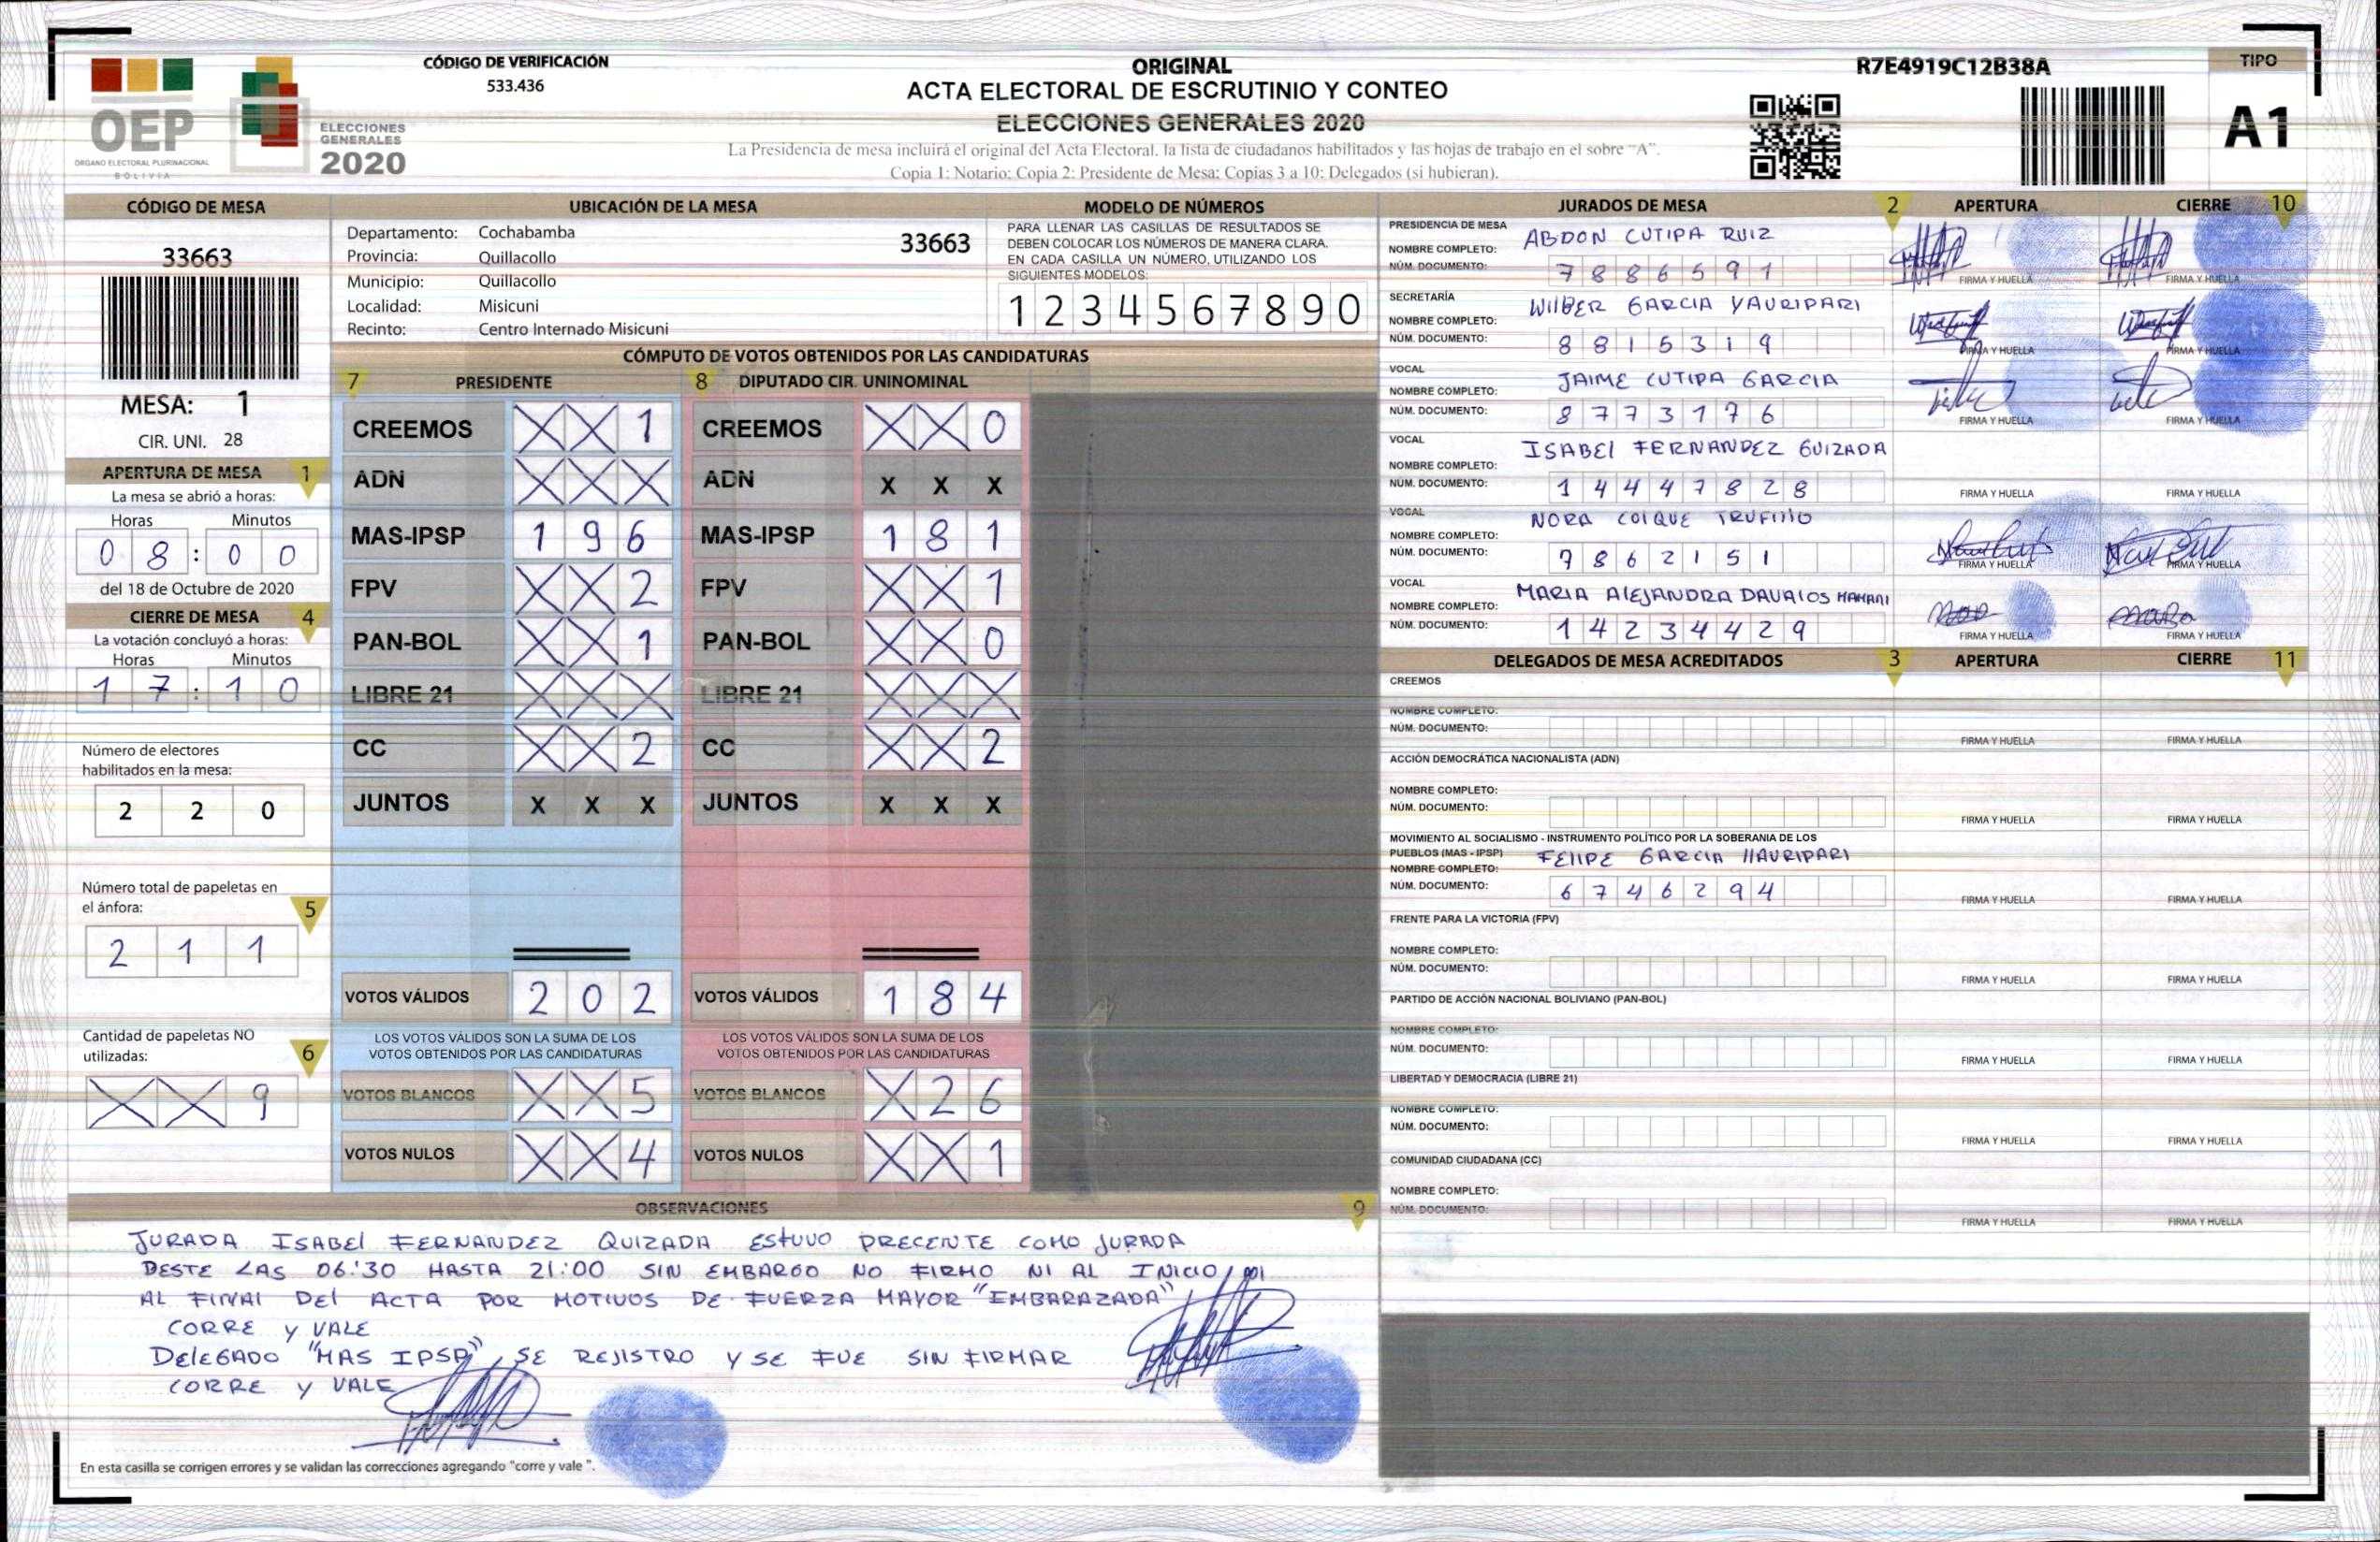 OEP
ÓRGANO ELECTORAL PLURINACIONAL
BOLIVIA
ELECCIONES
GENERALES
2020
CÓDIGO DE VERIFICACIÓN
533.436
ORIGINAL
ACTA ELECTORAL DE ESCRUTINIO Y CONTEO
ELECCIONES GENERALES 2020
La Presidencia de mesa incluirá el original del Acta Electoral, la lista de ciudadanos habilitados y las hojas de trabajo en el sobre "A".
Copia 1: Notario; Copia 2: Presidente de Mesa; Copias 3 a 10: Delegados (si hubieran).
R7E4919C12B38A
TIPO
A1
CÓDIGO DE MESA
33663
MESA: 1
CIR. UNI. 28
UBICACIÓN DE LA MESA
Departamento: Cochabamba
33663
Provincia: Quillacollo
Municipio: Quillacollo
Localidad: Misicuni
Recinto: Centro Internado Misicuni
MODELO DE NÚMEROS
PARA LLENAR LAS CASILLAS DE RESULTADOS SE
DEBEN COLOCAR LOS NÚMEROS DE MANERA CLARA.
EN CADA CASILLA UN NÚMERO, UTILIZANDO LOS
SIGUIENTES MODELOS:
1 2 3 4 5 6 7 8 9 0
APERTURA DE MESA 1
La mesa se abrió a horas:
Horas Minutos
0 8 : 0 0
del 18 de Octubre de 2020
CIERRE DE MESA 4
La votación concluyó a horas:
Horas Minutos
1 7 : 1 0
Número de electores
habilitados en la mesa:
2 2 0
Número total de papeletas en
el ánfora:
5
2 1 1
Cantidad de papeletas NO
utilizadas:
6
X X 9
CÓMPUTO DE VOTOS OBTENIDOS POR LAS CANDIDATURAS
7 PRESIDENTE 8 DIPUTADO CIR. UNINOMINAL
CREEMOS X X 1 CREEMOS X X 0
ADN X X X ADN X X X
MAS-IPSP 1 9 6 MAS-IPSP 1 8 1
FPV X X 2 FPV X X 1
PAN-BOL X X 1 PAN-BOL X X 0
LIBRE 21 X X X LIBRE 21 X X X
CC X X 2 CC X X 2
JUNTOS X X X JUNTOS X X X
VOTOS VÁLIDOS 2 0 2 VOTOS VÁLIDOS 1 8 4
LOS VOTOS VÁLIDOS SON LA SUMA DE LOS LOS VOTOS VÁLIDOS SON LA SUMA DE LOS
VOTOS OBTENIDOS POR LAS CANDIDATURAS VOTOS OBTENIDOS POR LAS CANDIDATURAS
VOTOS BLANCOS X X 5 VOTOS BLANCOS X 2 6
VOTOS NULOS X X 4 VOTOS NULOS X X 1
OBSERVACIONES 9
JURADA ISABEl FERNANDEZ QUIZADA EStUVO PRECENTE COMO JURADA
DESTE LAS 06:30 HASTA 21:00 SIN EMBARGO NO FIRMO NI AL INICIO NI
AL FINAl DEl ACTA POR MOTIVOS DE FUERZA MAYOR "EMBARAZADA"
CORRE y VALE
DElEGADO "MAS IPSP" SE REJISTRO Y SE FUE SIN FIRMAR
CORRE y VALE
En esta casilla se corrigen errores y se validan las correcciones agregando "corre y vale ".
JURADOS DE MESA 2 APERTURA CIERRE 10
PRESIDENCIA DE MESA
NOMBRE COMPLETO: ABDON CUTIPA RUIZ
NÚM. DOCUMENTO: 7 8 8 6 5 9 1
FIRMA Y HUELLA FIRMA Y HUELLA
SECRETARÍA
NOMBRE COMPLETO: WIlBER GARCIA YAURIPARI
NÚM. DOCUMENTO: 8 8 1 5 3 1 9
FIRMA Y HUELLA FIRMA Y HUELLA
VOCAL
NOMBRE COMPLETO: JAIME CUTIPA GARCIA
NÚM. DOCUMENTO: 8 7 7 3 1 7 6
FIRMA Y HUELLA FIRMA Y HUELLA
VOCAL
NOMBRE COMPLETO: ISABEl FERNANDEZ GUIZADA
NÚM. DOCUMENTO: 1 4 4 4 7 8 2 8
FIRMA Y HUELLA FIRMA Y HUELLA
VOCAL
NOMBRE COMPLETO: NORA COIQUE
NÚM. DOCUMENTO: 7 8 6 2 1 5 1
FIRMA Y HUELLA FIRMA Y HUELLA
VOCAL
NOMBRE COMPLETO: MARIA AlEJANDRA DAVAlOS MAMANI
NÚM. DOCUMENTO: 1 4 2 3 4 4 2 9
FIRMA Y HUELLA FIRMA Y HUELLA
DELEGADOS DE MESA ACREDITADOS 3 APERTURA CIERRE 11
CREEMOS
NOMBRE COMPLETO:
NÚM. DOCUMENTO:
FIRMA Y HUELLA FIRMA Y HUELLA
ACCIÓN DEMOCRÁTICA NACIONALISTA (ADN)
NOMBRE COMPLETO:
NÚM. DOCUMENTO:
FIRMA Y HUELLA FIRMA Y HUELLA
MOVIMIENTO AL SOCIALISMO - INSTRUMENTO POLÍTICO POR LA SOBERANIA DE LOS
PUEBLOS (MAS - IPSP)
NOMBRE COMPLETO: FElIPE GARCIA
NÚM. DOCUMENTO: 6 7 4 6 2 9 4
FIRMA Y HUELLA FIRMA Y HUELLA
FRENTE PARA LA VICTORIA (FPV)
NOMBRE COMPLETO:
NÚM. DOCUMENTO:
FIRMA Y HUELLA FIRMA Y HUELLA
PARTIDO DE ACCIÓN NACIONAL BOLIVIANO (PAN-BOL)
NOMBRE COMPLETO:
NÚM. DOCUMENTO:
FIRMA Y HUELLA FIRMA Y HUELLA
LIBERTAD Y DEMOCRACIA (LIBRE 21)
NOMBRE COMPLETO:
NÚM. DOCUMENTO:
FIRMA Y HUELLA FIRMA Y HUELLA
COMUNIDAD CIUDADANA (CC)
NOMBRE COMPLETO:
NÚM. DOCUMENTO:
FIRMA Y HUELLA FIRMA Y HUELLA